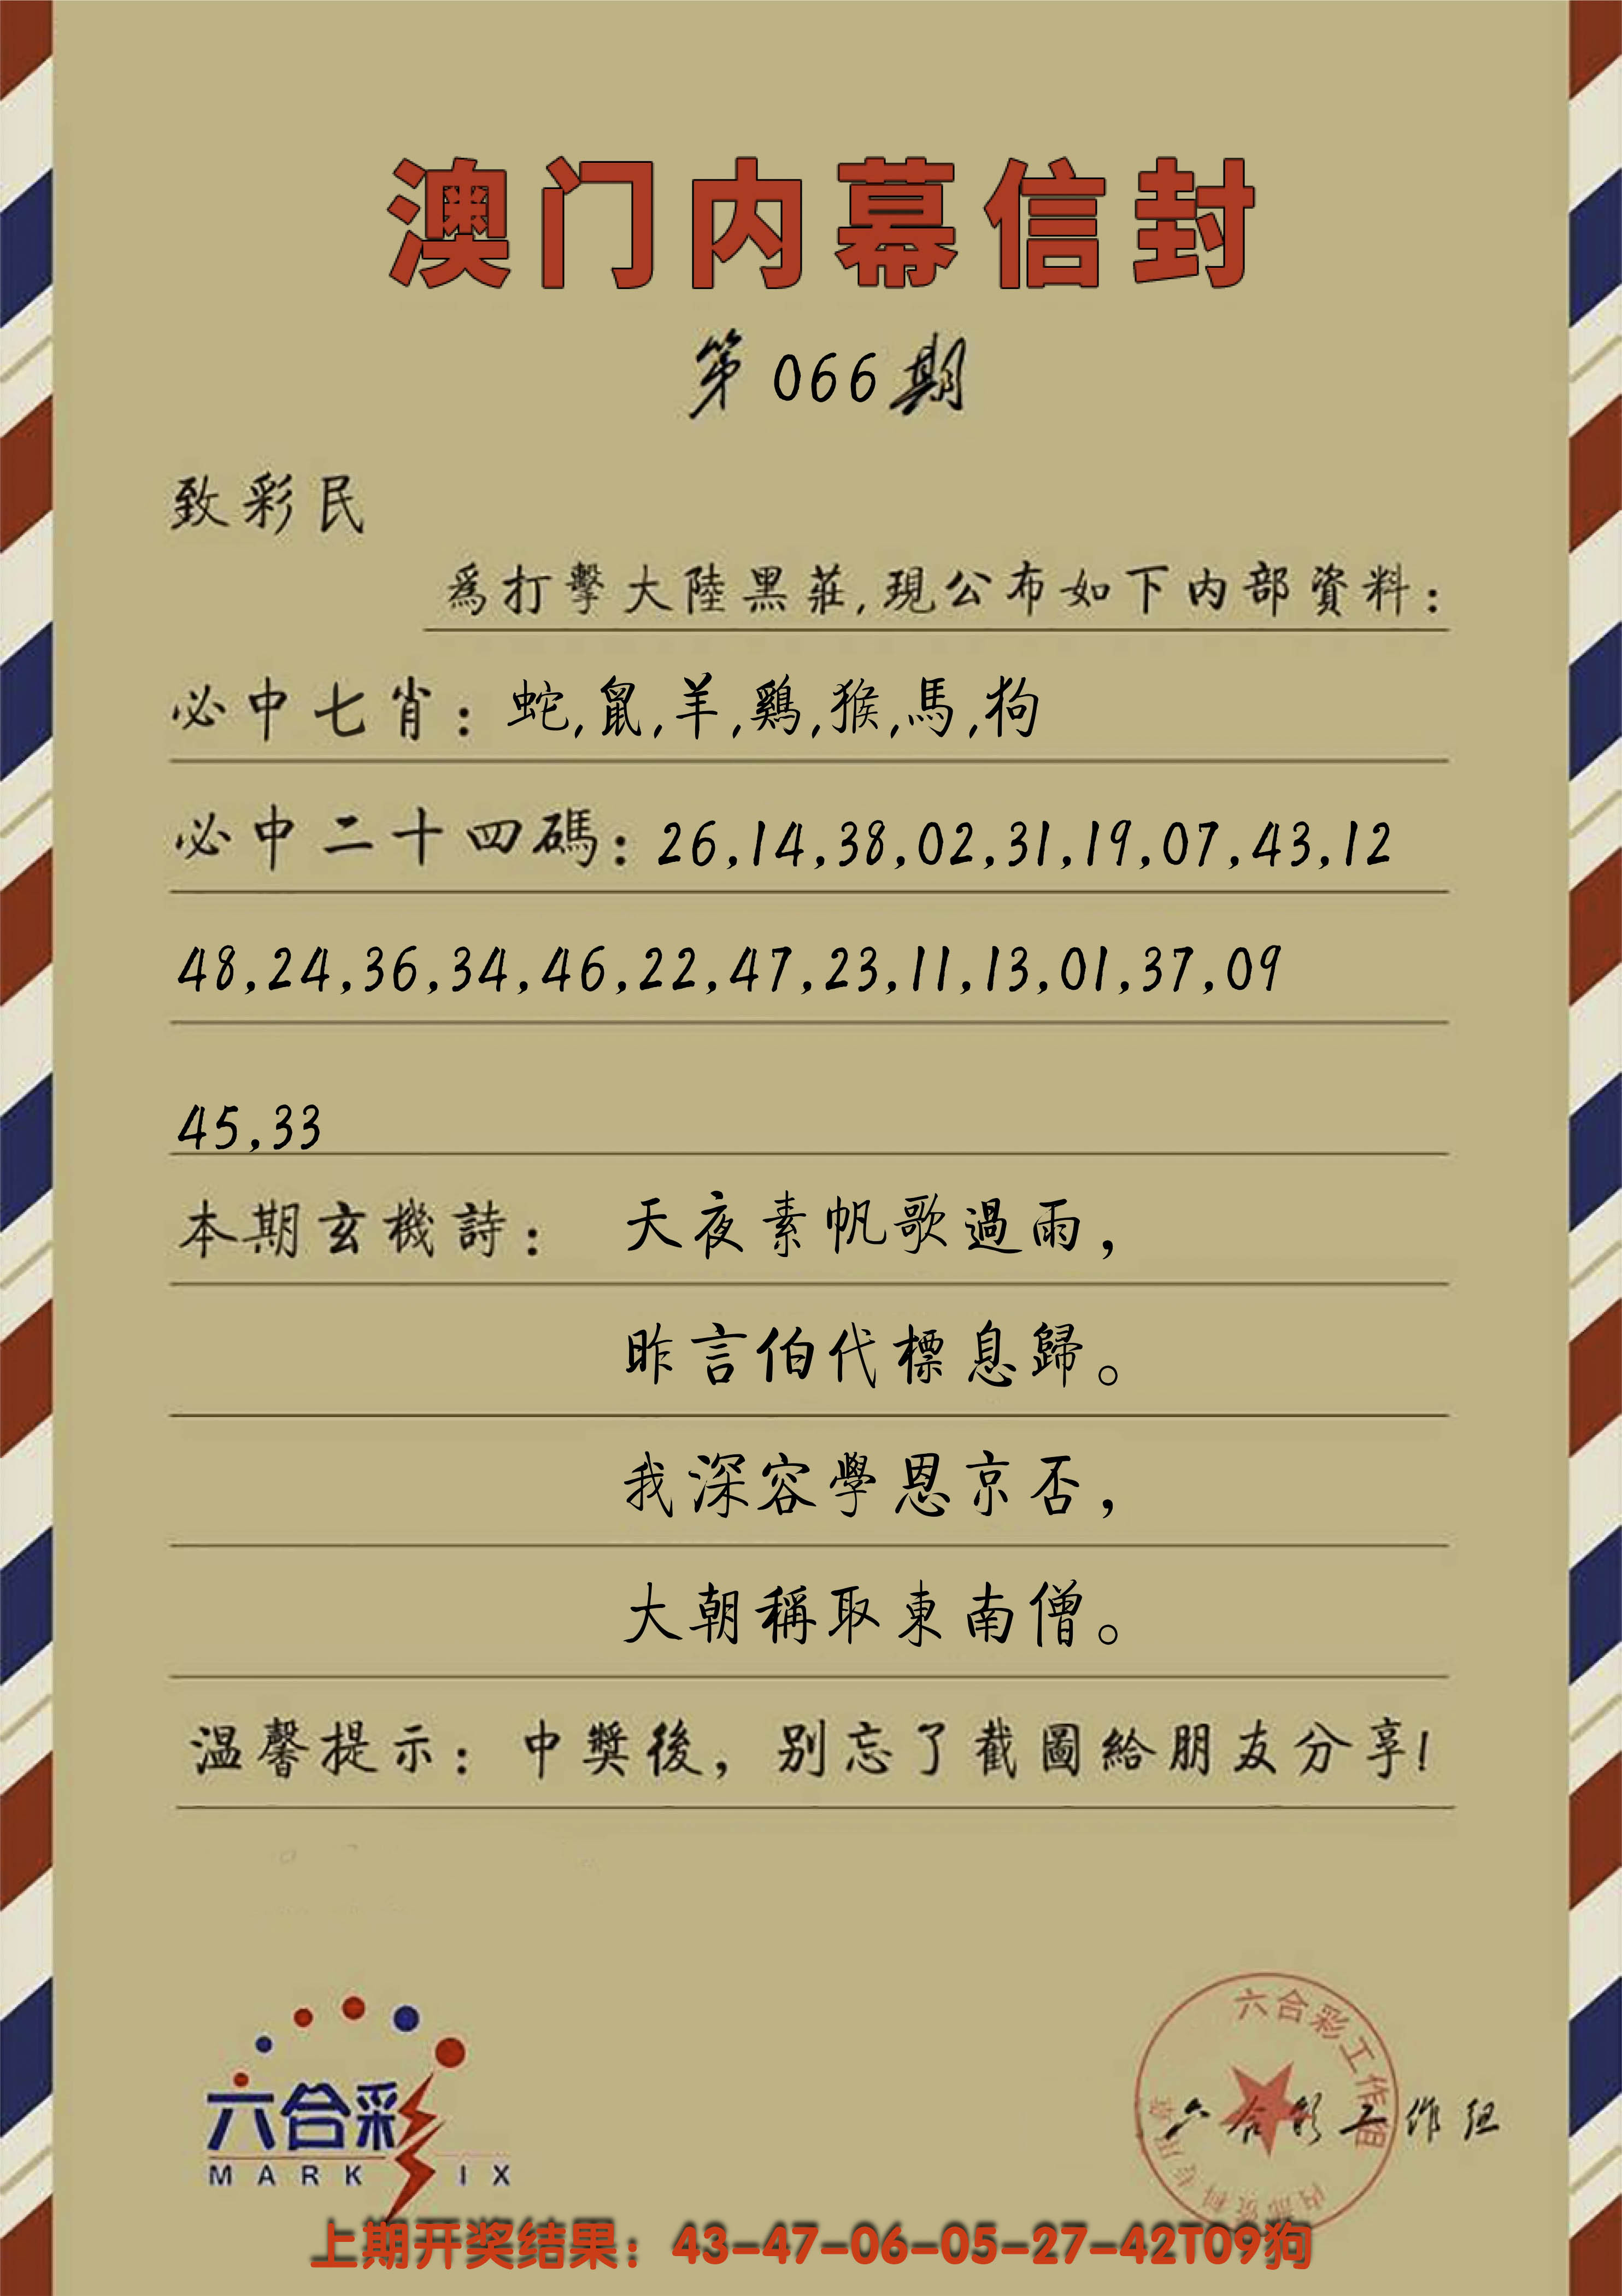 澳门内幕信封
第066期
致彩民
爲打擊大陸黑莊,現公布如下内部資料:
必中七肖:蛇,鼠,羊,鷄,猴,馬,狗
必中二十四碼:26,14,38,02,31,19,07,43,12
48,24,36,34,46,22,47,23,11,13,01,37,09
45,33
本期玄機詩: 天夜素帆歌過雨,
昨言伯代標息歸。
我深容學恩京否,
大朝稱取東南僧。
温馨提示:中獎後,别忘了截圖給朋友分享!
六合彩
MARK IX
六合彩工作组
内部资料专用章
六合彩工作组
上期开奖结果:43-47-06-05-27-42T09狗